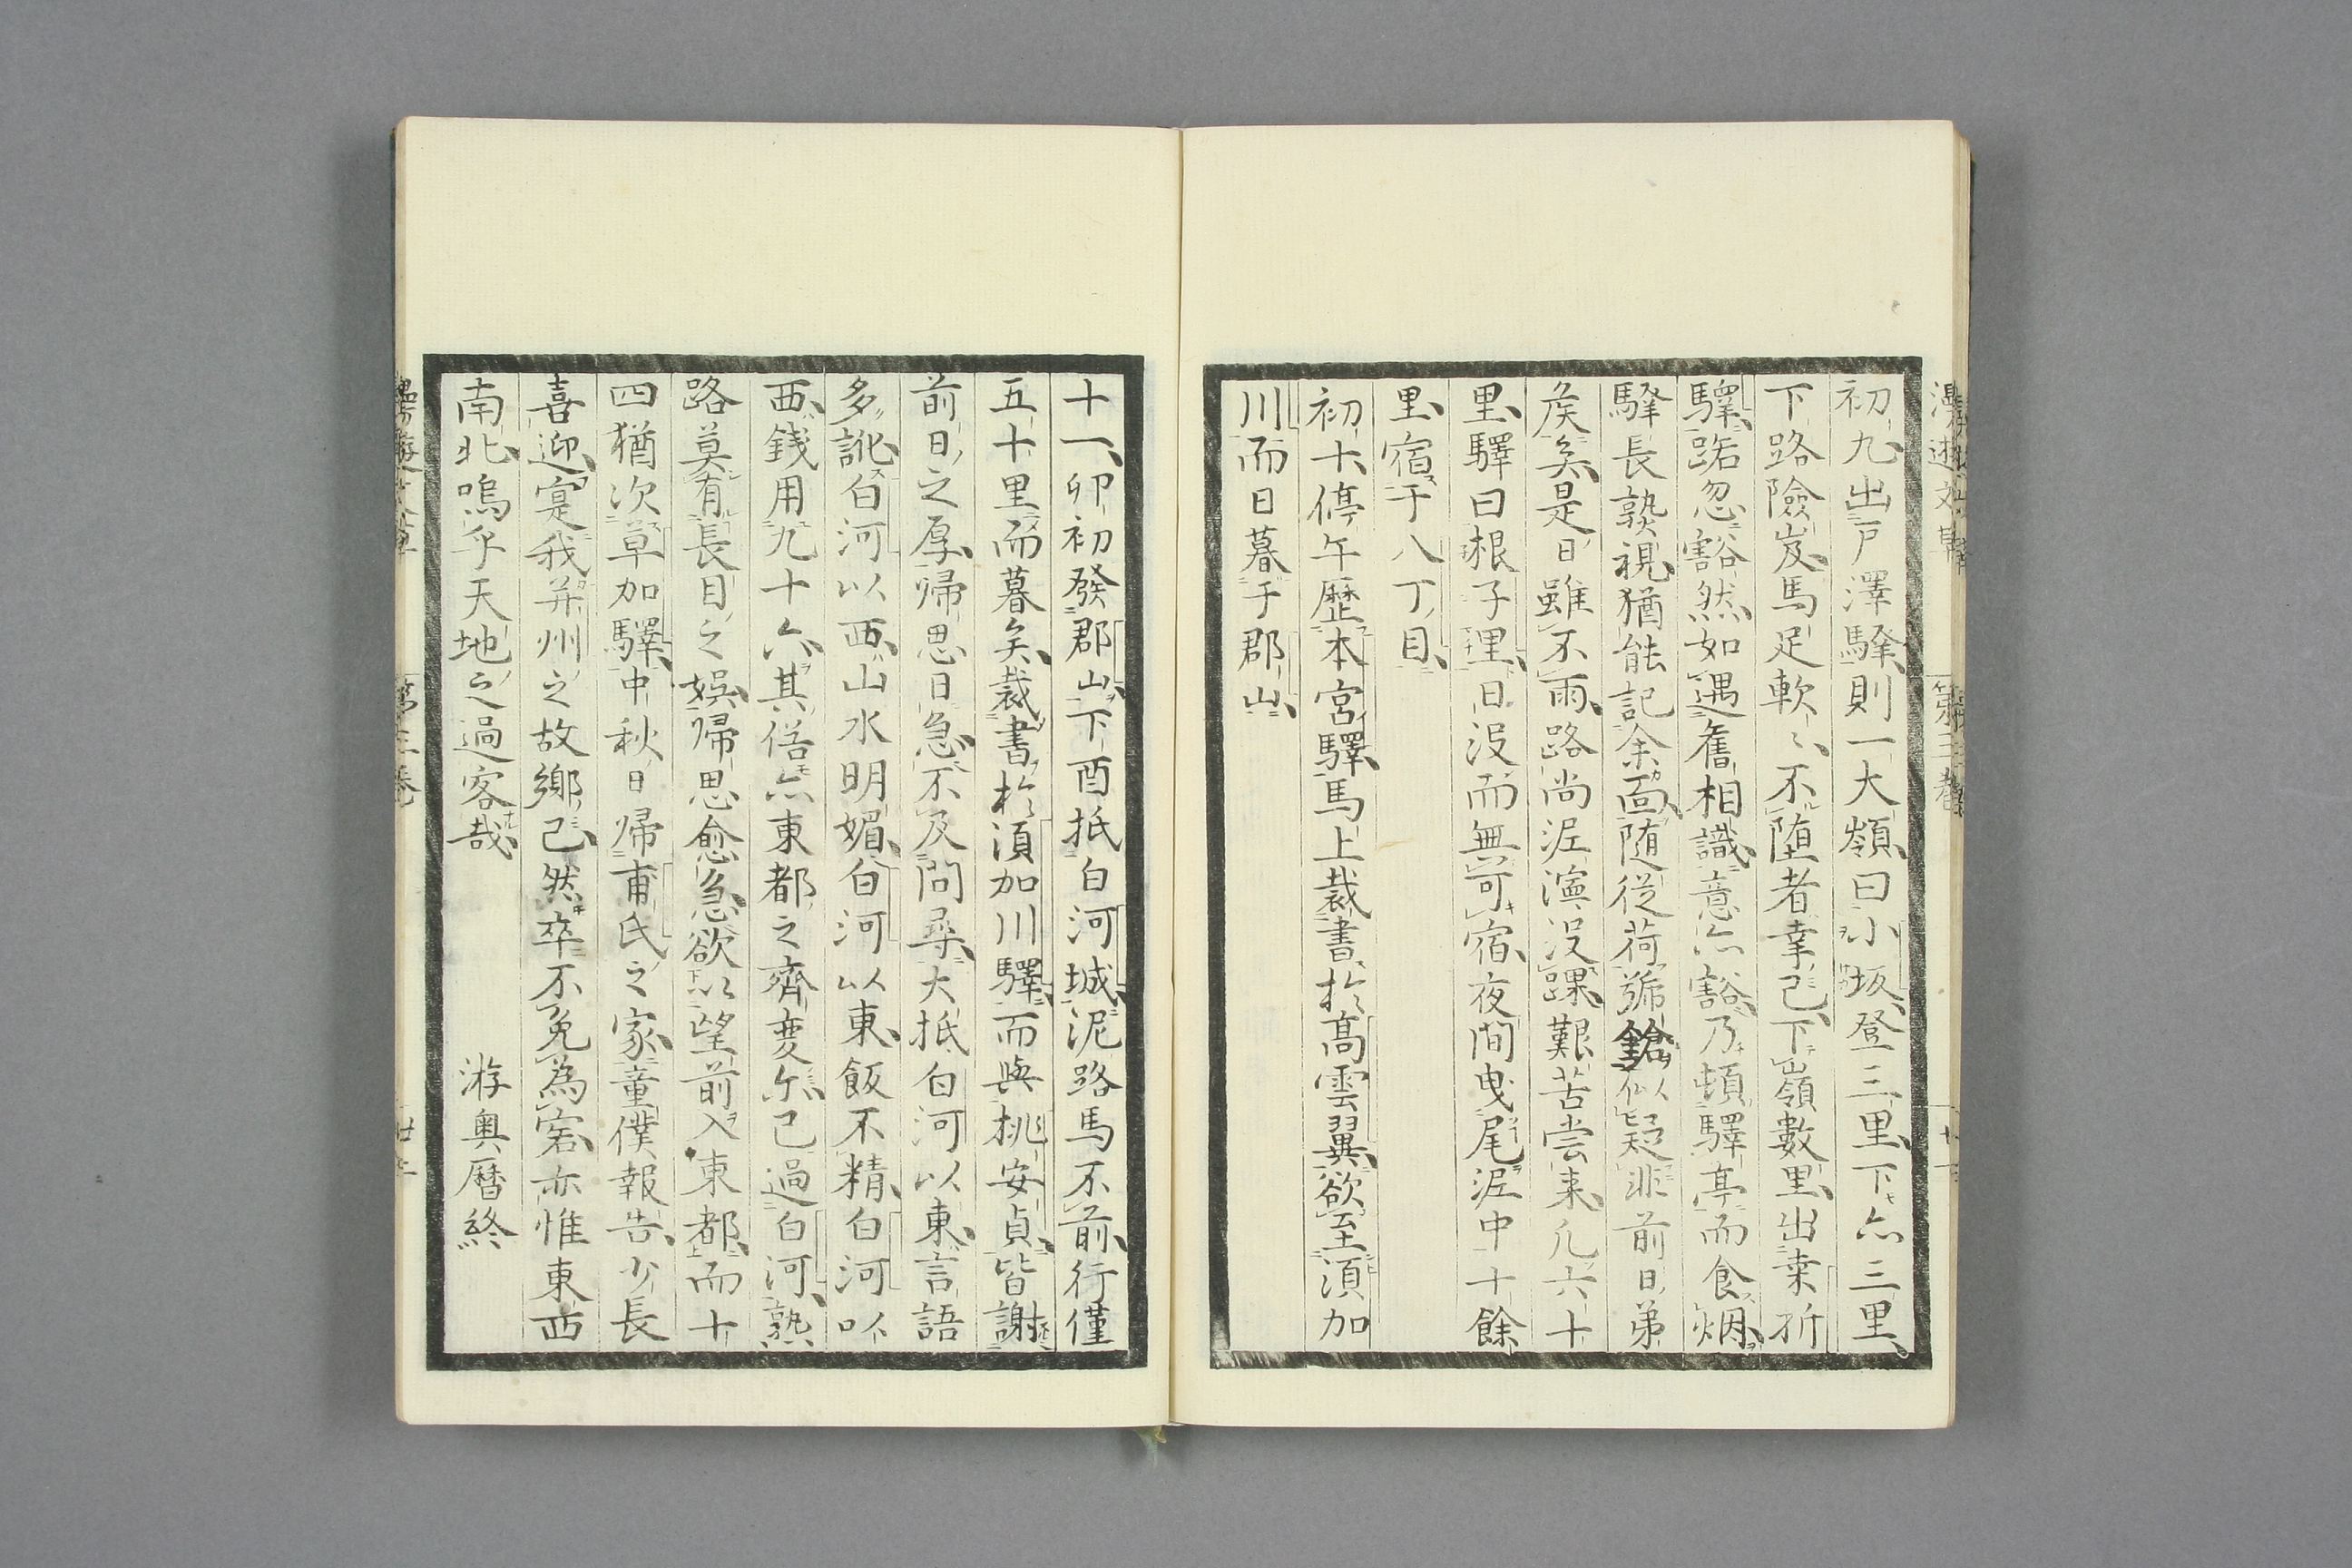 初九出戸澤驛則一大嶺曰小坂登三里下亦三里
下路險岌馬足軟々不墮者幸已下嶺數里出桒折
驛路忽豁然如遇舊相識意亦豁乃頓驛亭而食烟
驛長熟視猶能記余面随從荷號鎗似疑非前日弟
矦矣是日雖不雨路尚泥濘没踝艱苦尝来凢六十
里驛曰根子里日没而無可宿夜間曳尾泥中十餘
里宿于八丁目
初十停午歷本宮驛馬上裁書於髙雲翼欲至湏加
川而日暮于郡山
十一卯初發郡山下酉抵白河城泥路馬不前行僅
五十里而暮矣裁書於湏加川驛而與桃安貞皆謝
前日之厚帰思日急不及問尋大抵白河以東言語
多訛白河以西山水明媚白河以東飯不精白河以
西錢用九十六其俗亦東都之齊変尓已過白河熟
路莫有長目之娯帰思愈急欲以望前入東都而十
四猶次草加驛中秋日帰甫氏之家童僕報告少長
喜迎寔我并州之故鄉已然卒不免為客亦惟東西
南北嗚乎天地之過客哉
游奥曆終
第三卷